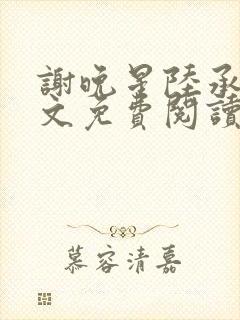 謝晚星陸承
文免費閱讀
慕容清嘉